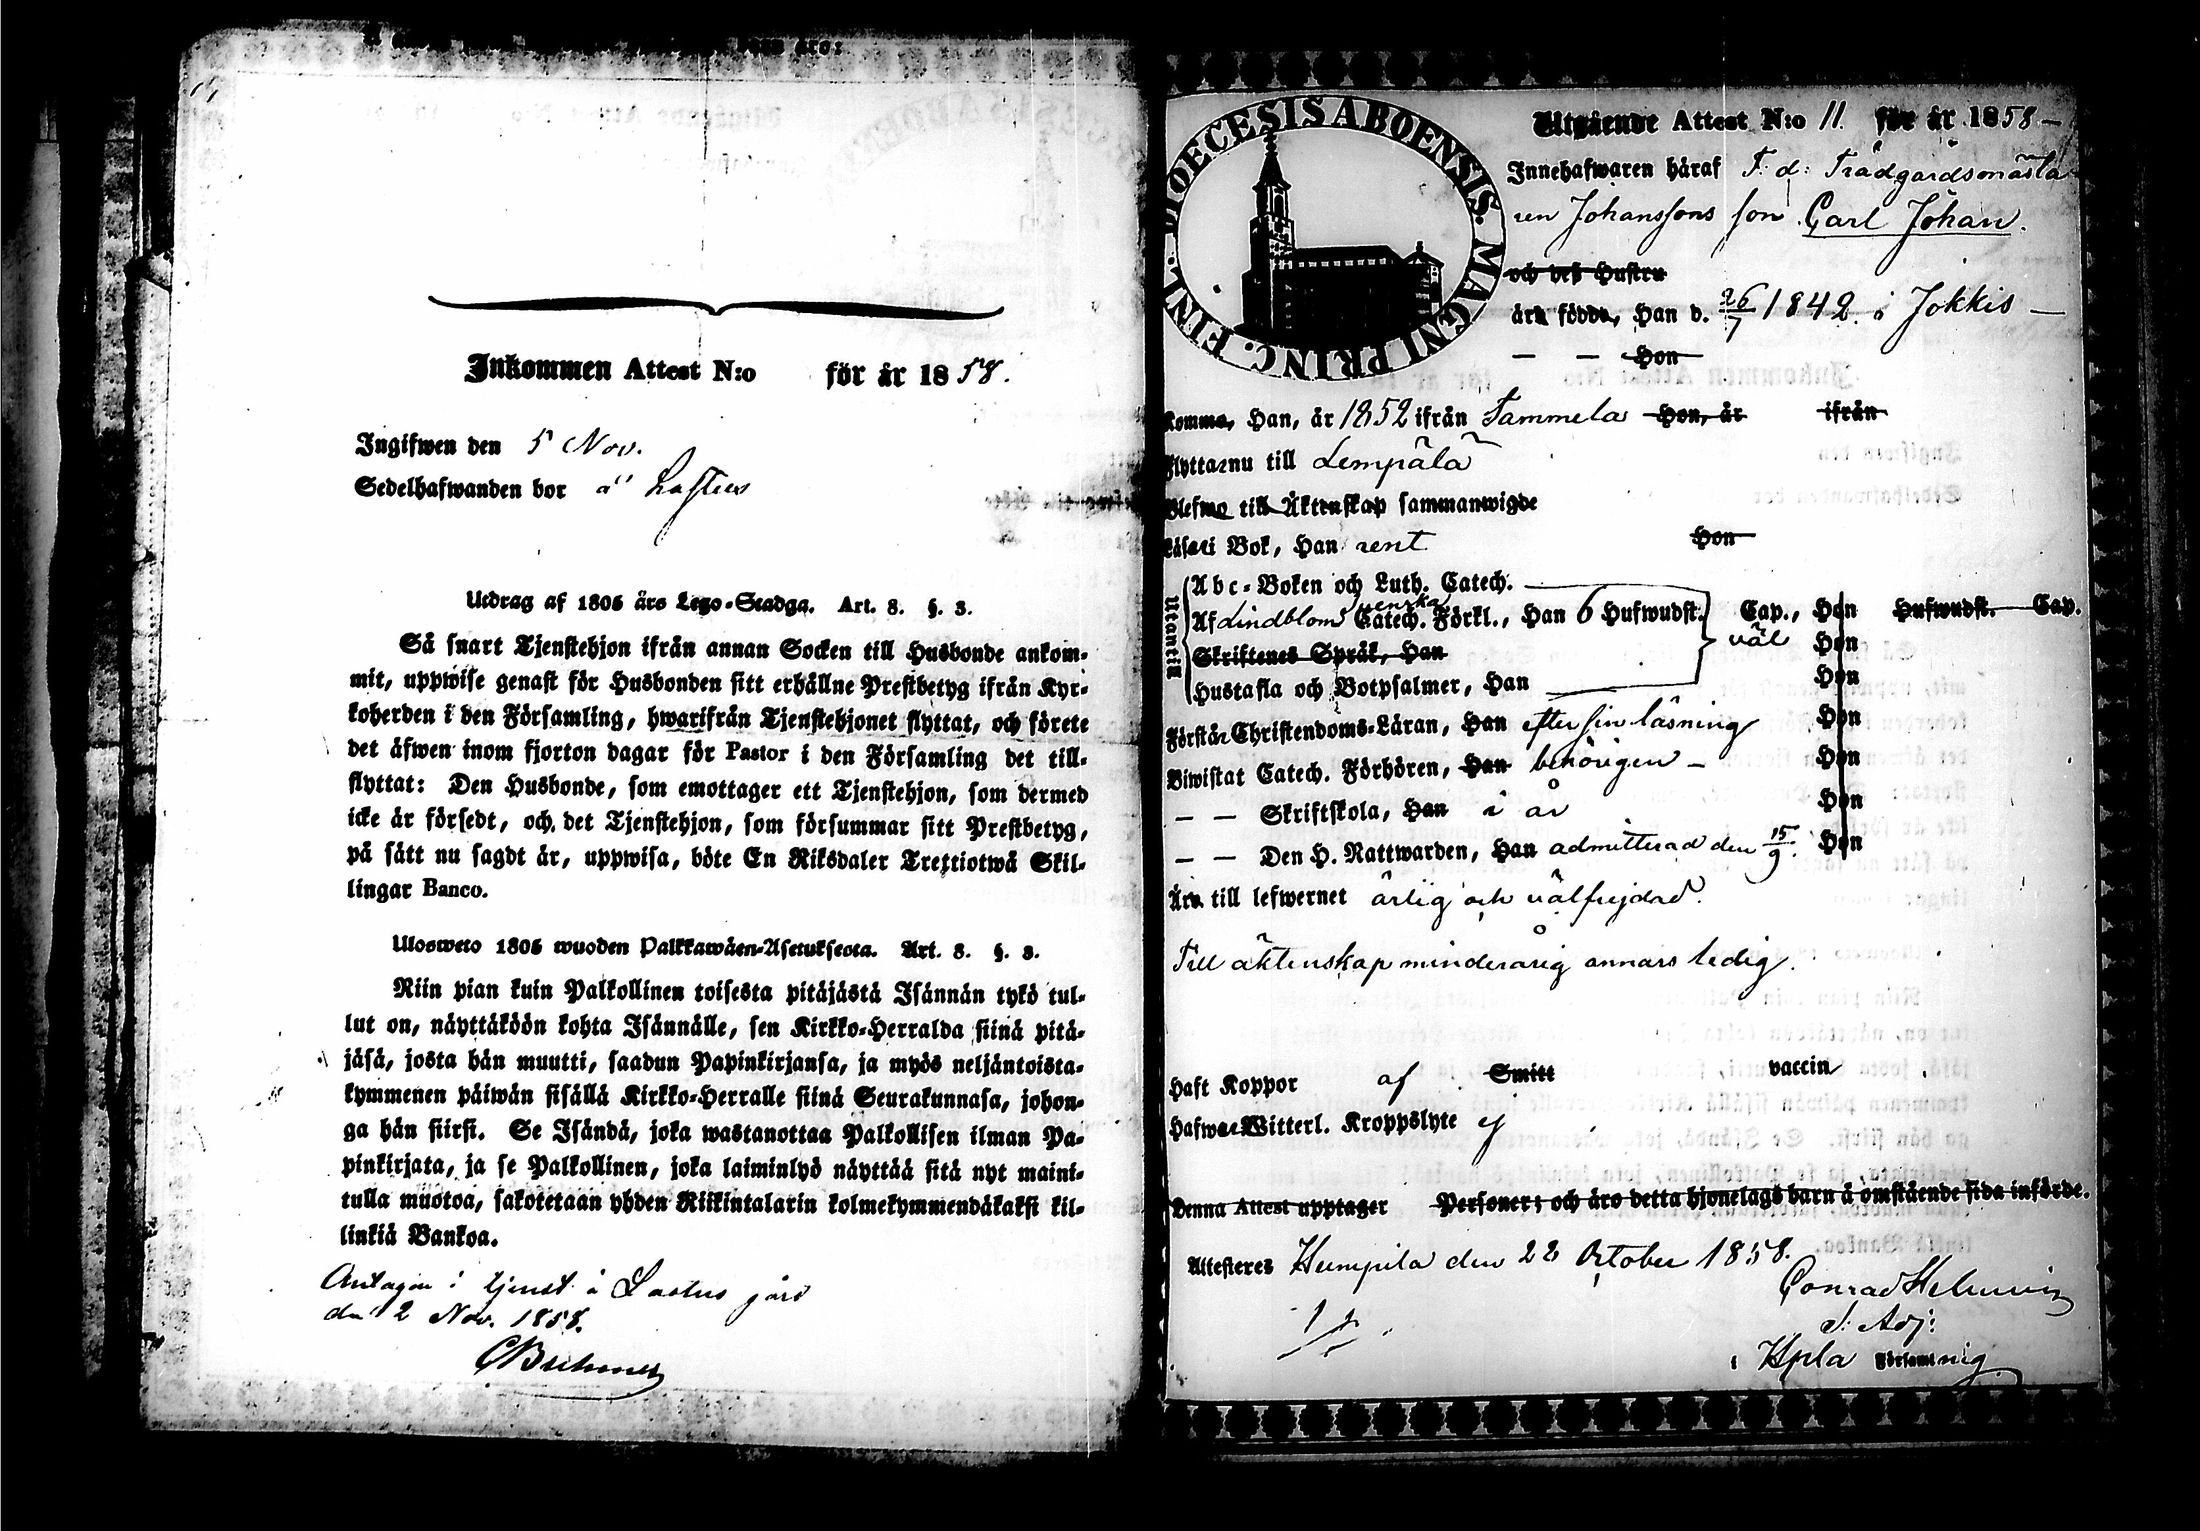 Inkommen Attest N:o för år 1858.
Ingifwen den 5 Nov.
Sedelhafwanden bor å Lastus
Utdrag af 1805 års Lego-Stadga. Art. 8. §. 3.
Så snart Tjenstehjon ifrån annan Socken till Husbonde ankom-
mit, uppwise genast för Husbonden sitt erhållne Prestbetyg ifrån Kyr-
koherden i den Församling, hwarifrån Tjenstehjonet flyttat, och förete
det äfwen inom fjorton dagar för Pastor i den Församling det till-
flyttat: Den Husbonde, som emottager ett Tjenstehjon, som dermed
icke är försedt, och det Tjenstehjon, som försummar sitt Prestbetyg,
på sätt nu sagdt är, uppwisa, böte En Riksdaler Trettiotwå Skil-
lingar Banco.
Ulosweto 1805 wuoden Palkkawäen-Asetuksesta. Art. 8. §. 3.
Niin pian kuin Palkollinen toisesta pitäjästä Isännän tykö tul-
lut on, näyttäköön kohta Isännälle, sen Kirkko-Herralda siinä pitä-
jäsä, josta hän muutti, saadun Papinkirjansa, ja myös neljäntoista-
kymmenen päiwän sisällä Kirkko-Herralle siinä Seurakunnasa, johon-
ga hän siirsi. Se Isändä, joka wastanottaa Palkollisen ilman Pa-
pinkirjata, ja se Palkollinen, joka laiminlyö näyttää sitä nyt maini-
tulla muotoa, sakotetaan yhden Riikintalarin kolmekymmendäkaksi kil-
linkiä Bankoa.
Antagen i tjenst å Lastus gård
den 2 Nov. 1858.
DIOECESIS ABOENSIS. MAGNI PRINC. FINL.
Utgående Attest N:o 11. för år 1858 —
Innehafwaren häraf F. d: Trädgårdsmästa
ren Johanssons son Carl Johan.
och dess Hustru
äro födde, Han d. 26/7 1842 i Jokkis —
— — Hon
Komma, Han, år 1852 ifrån Tammela Hon, år ifrån
Flytta nu till Lempälä
Blefwo till Äktenskap sammanwigde
Läsa i Bok, Han rent Hon
Utantill
Abc-Boken och Luth. Catech.
Af Lindbloms svenska Catech. Förkl., Han 6 Hufwudst. Cap., Hon Hufwudst. Cap.
Skriftenes Språk, Han väl Hon
Hustafla och Botpsalmer, Han Hon
Förstår Christendoms-Läran, Han efter sin läsning Hon
Biwistat Catech. Förhören, Han behörigen — Hon
— — Skriftskola, Han i år Hon
— — Den H. Nattwarden, Han admitterad den 15/9. Hon
Äro till lefwernet ärlig och välfrejdad.
Till äktenskap minderårig annars ledig.
Haft Koppor af Smitt vaccin
Hafwa Witterl. Kroppslyte ej
Denna Attest upptager Personer; och äro detta hjonelags barn å omstående sida införde.
Attesteres Humpila den 22 October 1858.
Conrad Helenius
S: Adj:
i Hpla Församlning